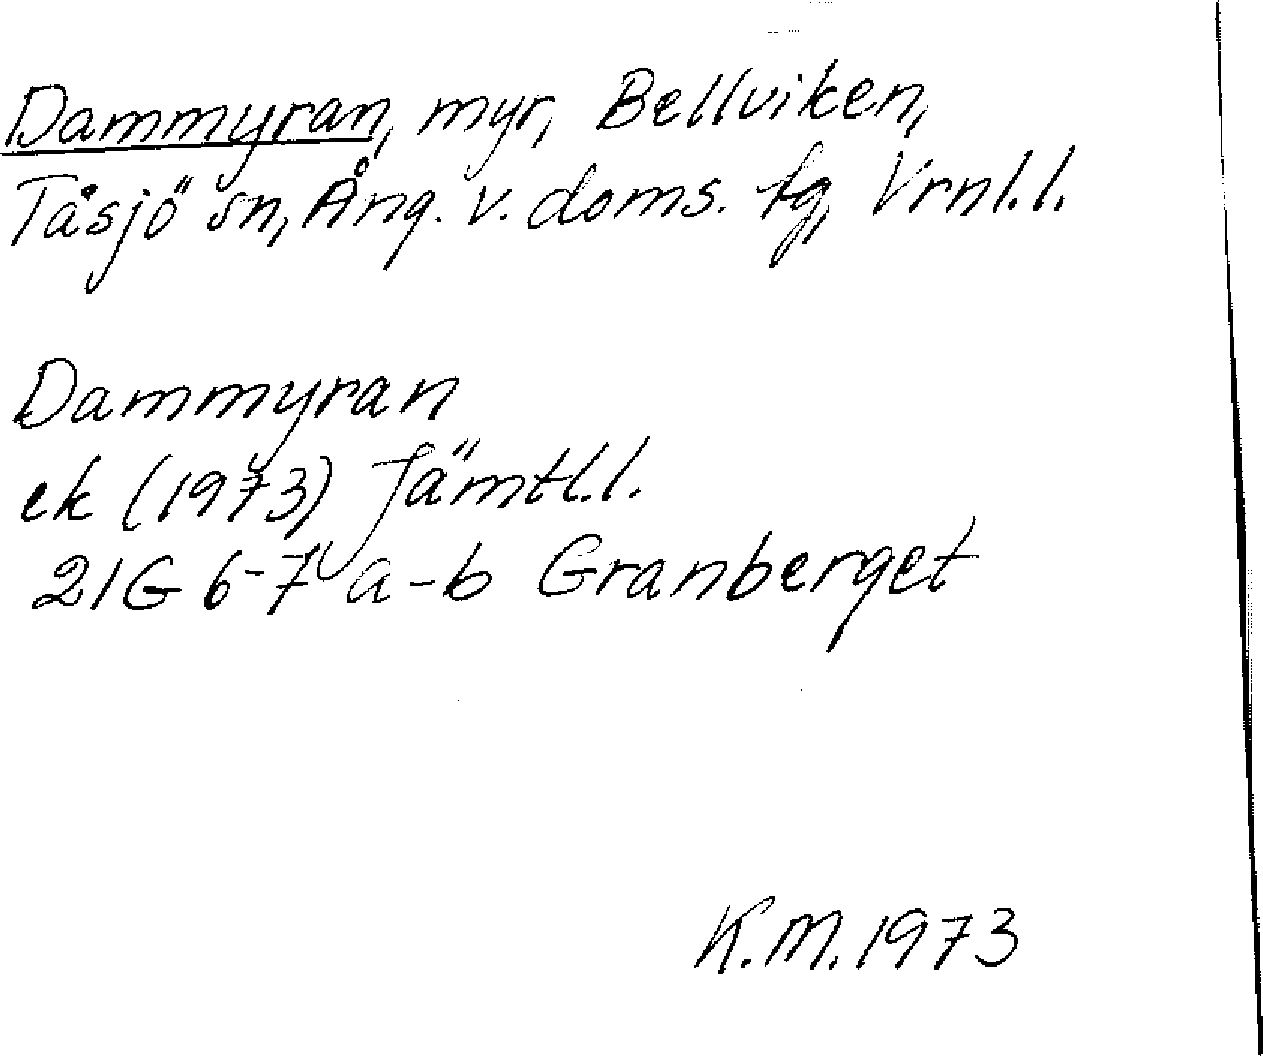 Dammyran, myr, Bellviken,
Tåsjö sn, Ång. v. doms. tg, Vrnl.l.
Dammyran
ek (1973) Jämtl.l.
21G 6-7 a-b Granberget
K.M. 1973